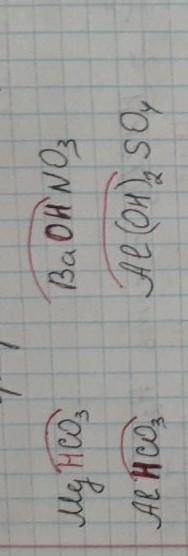 MgHCO₃ BaOHNO₃
AlHCO₃ Al(OH)₂SO₄